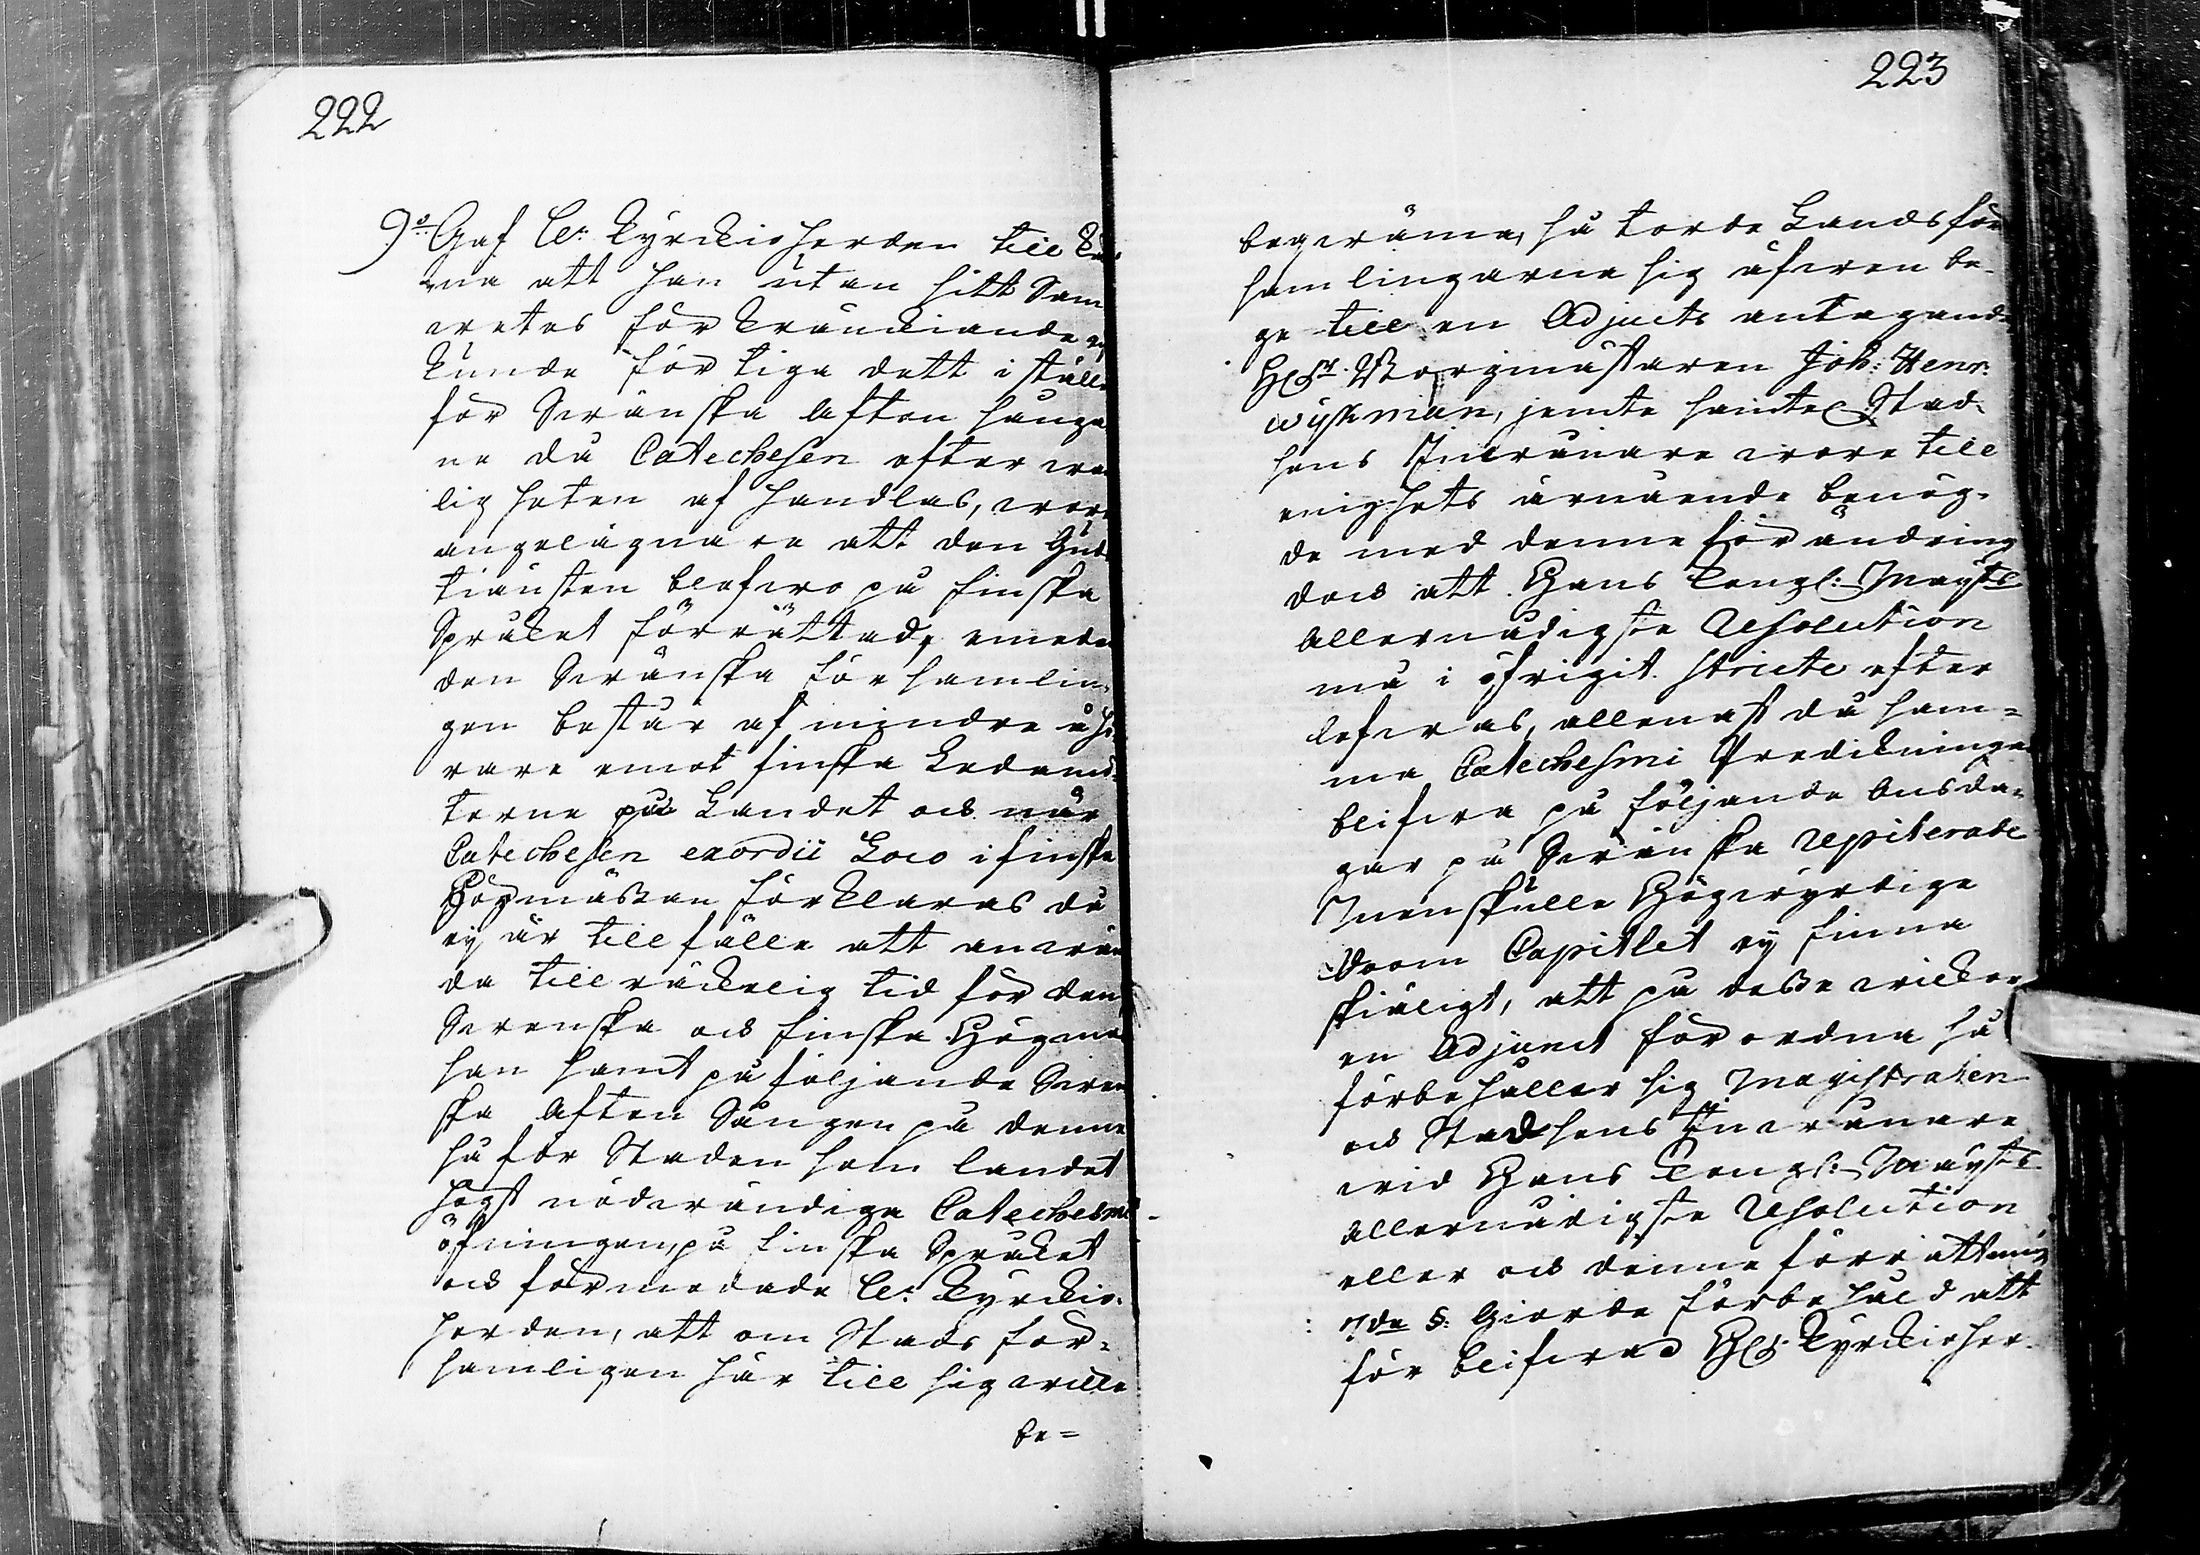 222
9:o Gaf Cr: Kyrckioherden till kä-
na att han utan sitt Sam
wetes förkränckiande ej
kunde förtiga dett i ställe
för Swänska aftonsånga
ne då Catechesen efter wa
ligheten afhandlas, wore
angelägnare att den Gude
tiänsten blefwo på finska
Språket förrättad, emeda
den Swänska församlin-
gen består af mindre åhö
rare emot finska Ledamö-
terne på Landet och när
Catechesen exordii Loco i finska
Högmässan förklaras då
ej är tillfälle att anwän
da tillräckelig tid för den
Swenska och finska Högmä
san samt på följande Swen
ska Aftonsången på denne
så för Staden som landet
högst nödwändiga Catechesmi
öfningen, på finska Språket
och förmodade Cr: Kyrckio-
herden, att om Stads för-
samligen här till sig wille
be=
223
beqwäma, så torde Landsför
samlingarna sig äfwen be-
ge till en Adjuncts antagande
Borgmästaren Joh: Henr:
Wijkman, jemte samtel. Stad-
sens Inwånare wore till
enighets ärnående benög-
de med denne förändring
doch att Hans Kongl: Mayts
Allernådigste Resolution
må i öfrigit stricte efter
lefwas, allenast då sam=
ma Catechesmi Predikninga
blifwa på följande Onsda-
gar på Swänska repiterade
Men skulle Högwyrdige
Doom Capitlet ej finna
skiäligt, att på desse wickor
en Adjunct förordna så
förbehåller sig Magistraten
och Stadsens Inwånare
wid Hans Kongl: Mayts
allernådigste Resolution
eller och denne förrättning
7de §: Giorde förbehåld att
för blifwa Kyrckioher-